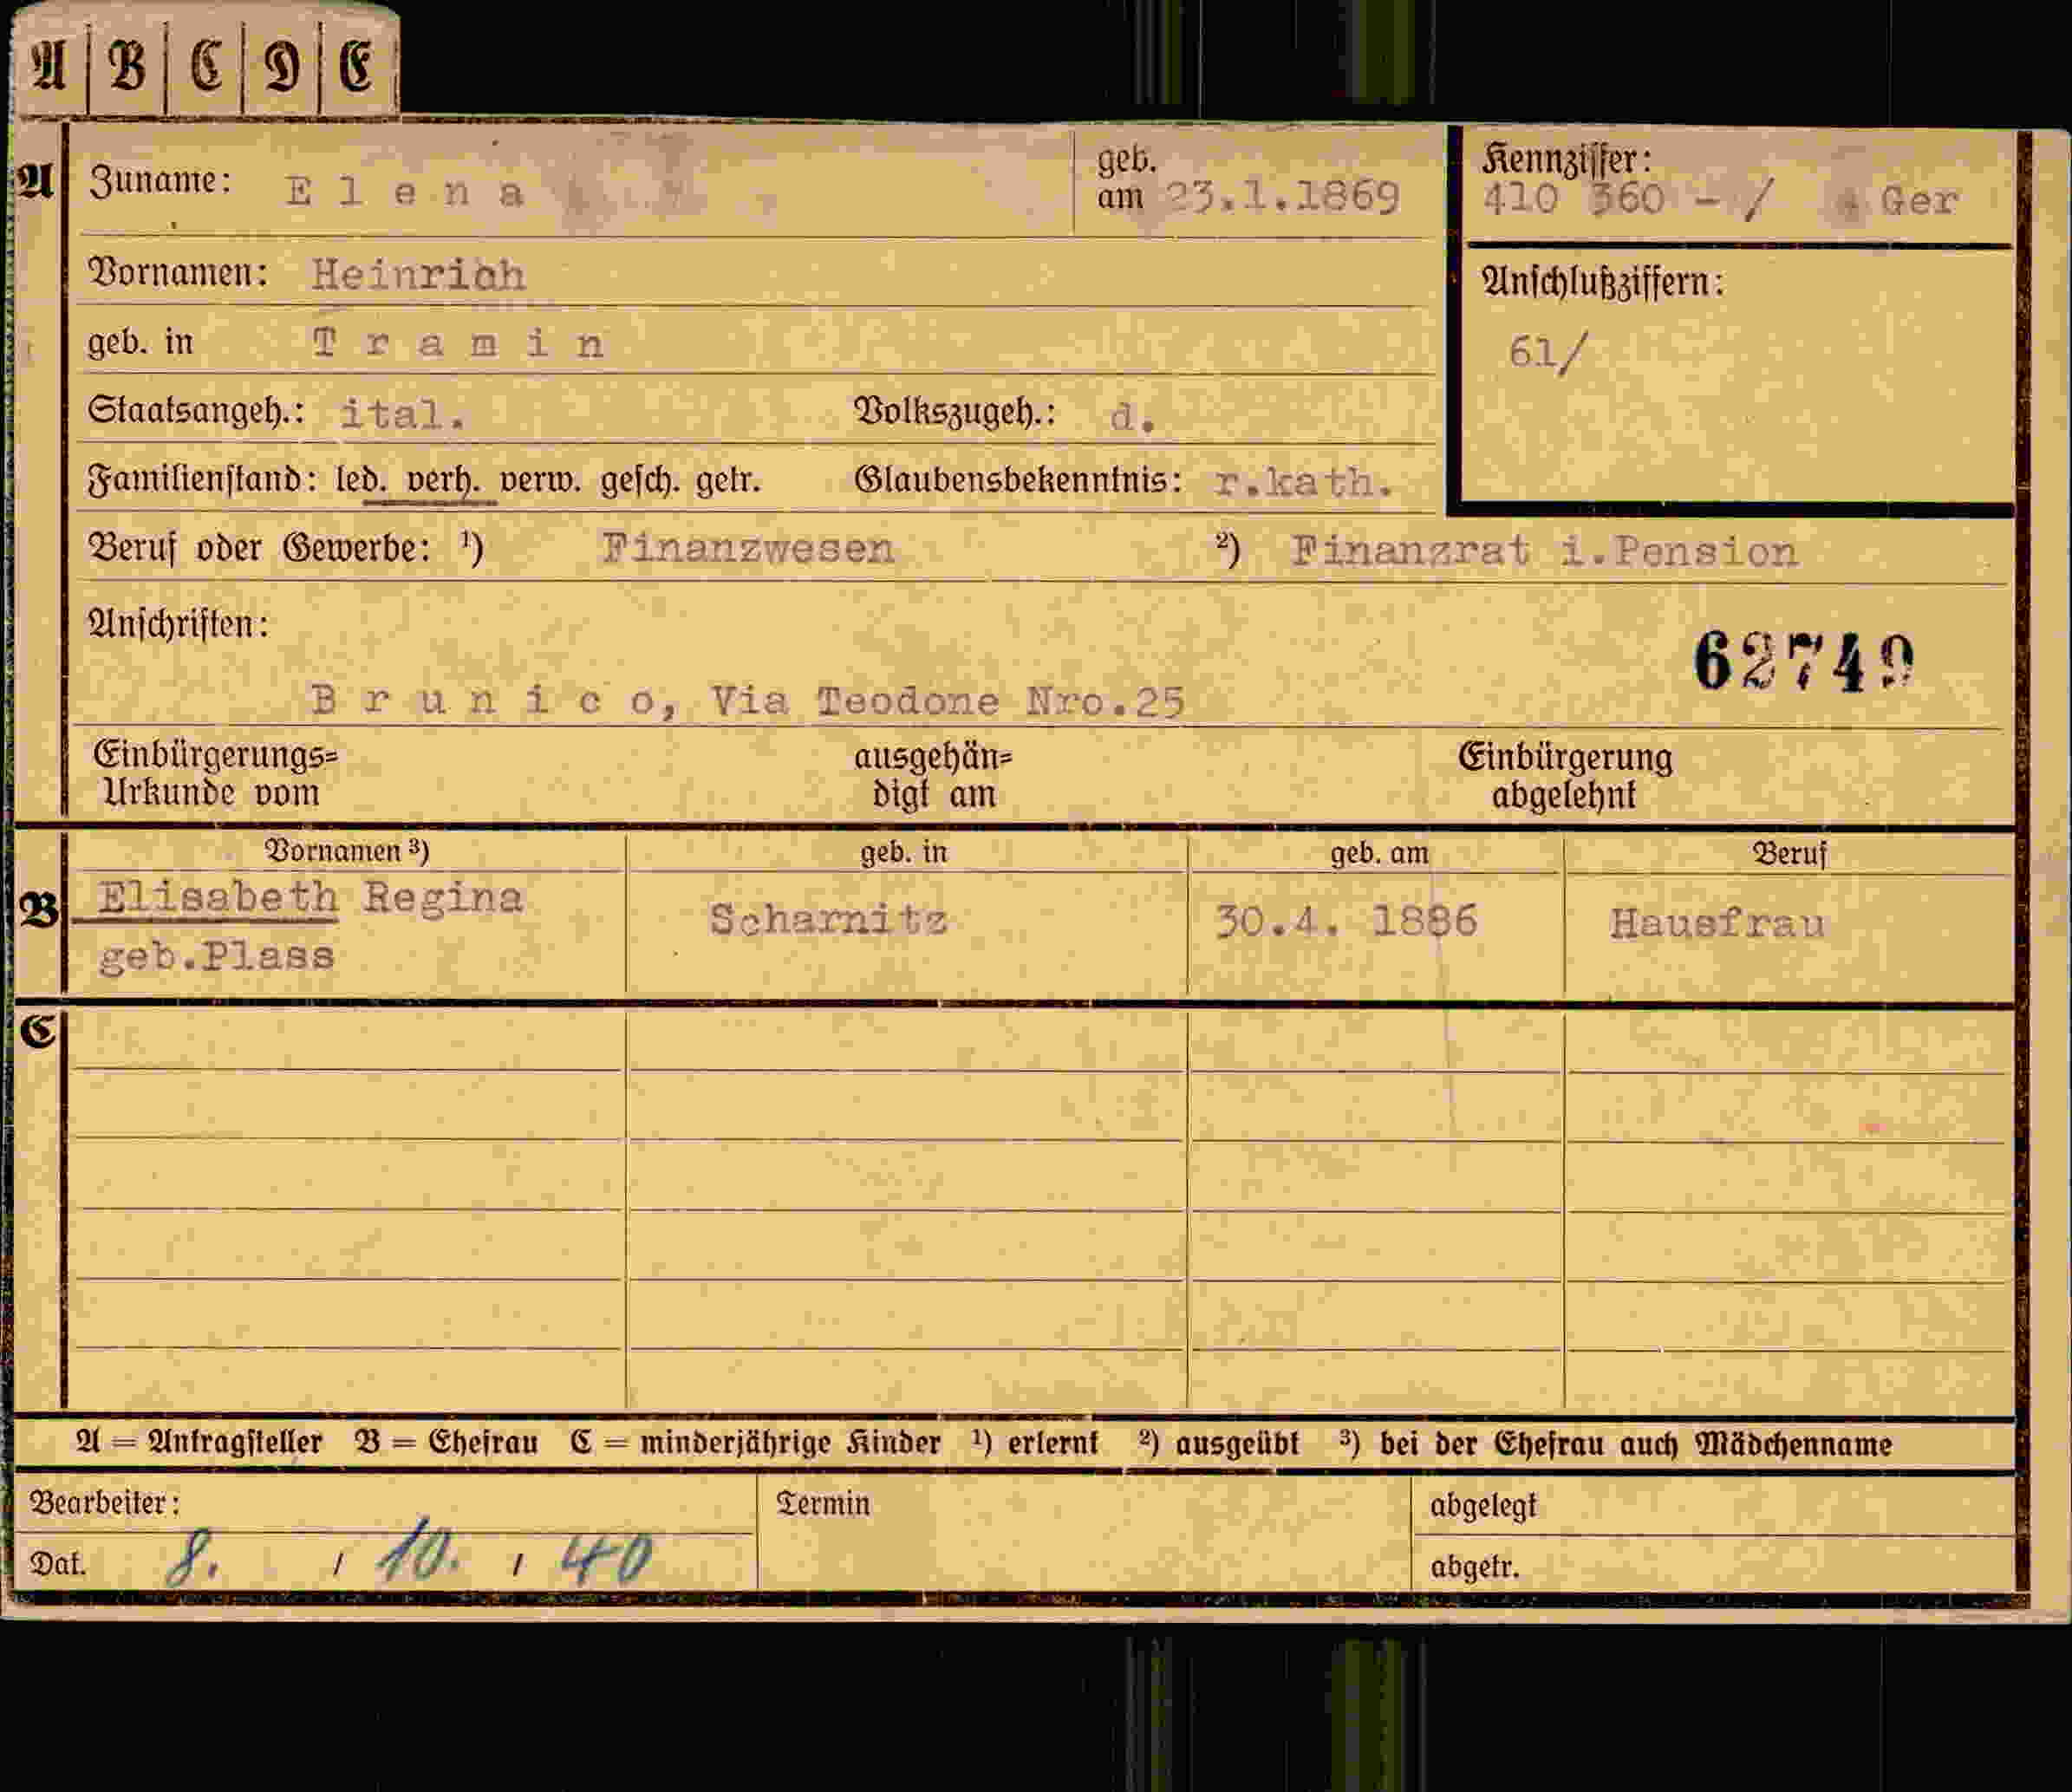 A B C D E
A Zuname: Elena geb. am 23.1.1869 Kennziffer: 410 360 - / Ger
Vornamen: Heinrich Anschlußziffern:
geb. in Tramin 61/
Staatsangeh.: ital. Volkszugeh.: d.
Familienstand: led. verh. verw. gesch. getr. Glaubensbekenntnis: r.kath.
Beruf oder Gewerbe: ¹) Finanzwesen ²) Finanzrat i.Pension
Anschriften:
62749
Brunico, Via Teodone Nro.25
Einbürgerungs= ausgehän= Einbürgerung
Urkunde vom digt am abgelehnt
Vornamen ³) geb. in geb. am Beruf
B Elisabeth Regina Scharnitz 30.4. 1886 Hausfrau
geb.Plass
C
A = Antragsteller B = Ehefrau C = minderjährige Kinder ¹) erlernt ²) ausgeübt ³) bei der Ehefrau auch Mädchenname
Bearbeiter: Termin abgelegt
Dat. 8. / 10. / 40 abgetr.